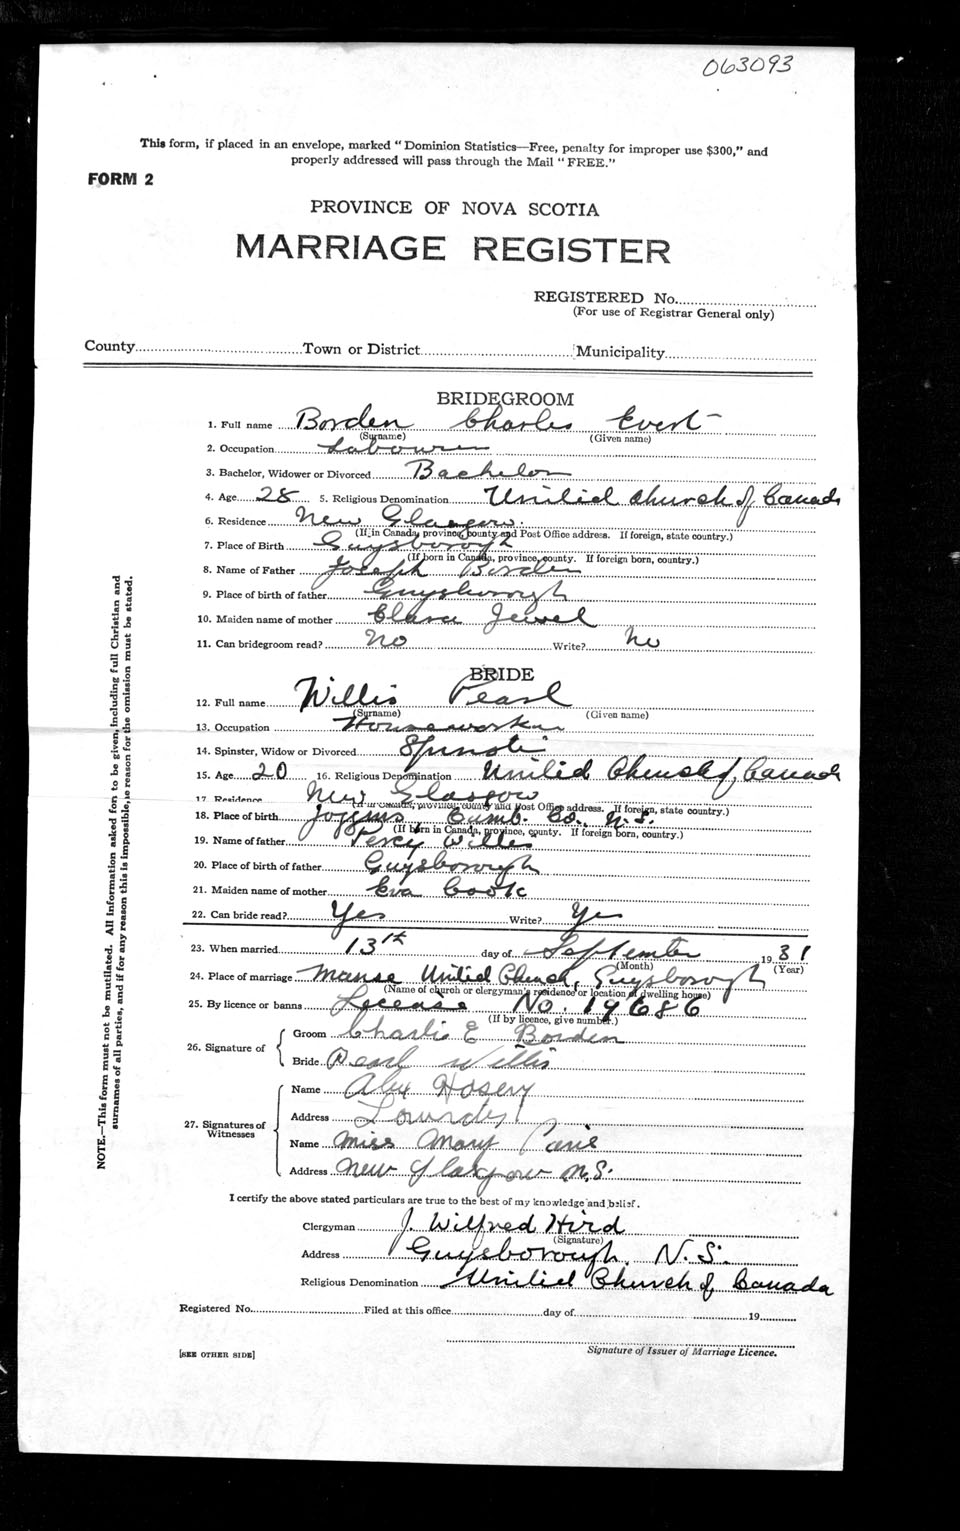 063093
This form, if placed in an envelope, marked "Dominion Statistics—Free, penalty for improper use $300," and
properly addressed will pass through the Mail "FREE."
FORM 2
PROVINCE OF NOVA SCOTIA
MARRIAGE REGISTER
REGISTERED No.
(For use of Registrar General only)
County Town or District Municipality
BRIDEGROOM
1. Full name Borden Charles Evert
(Surname) (Given name)
2. Occupation Labourer
3. Bachelor, Widower or Divorced Bachelor
4. Age 28 5. Religious Denomination United Church of Canada
6. Residence New Glasgow.
(If in Canada, province, county and Post Office address. If foreign, state country.)
7. Place of Birth Guysborough
(If born in Canada, province, county. If foreign born, country.)
8. Name of Father Joseph Borden
9. Place of birth of father Guysborough
10. Maiden name of mother Clara Jewel
11. Can bridegroom read? No Write? No
BRIDE
12. Full name Willis Pearl
(Surname) (Given name)
13. Occupation Houseworker
14. Spinster, Widow or Divorced
15. Age 20 16. Religious Denomination United Church of Canada
17. Residence New Glasgow
(If in Canada, province, county and Post Office address. If foreign, state country.)
18. Place of birth Joggins Cumb. Co., N.S.
(If born in Canada, province, county. If foreign born, country.)
19. Name of father Percy Willis
20. Place of birth of father Guysborough
21. Maiden name of mother Eva Cook
22. Can bride read? Yes Write? Yes
23. When married 13th day of September 1931
(Month) (Year)
24. Place of marriage Manse United Church, Guysborough
(Name of church or clergyman's residence or location of dwelling house)
25. By licence or banns No. 19686
(If by licence, give number.)
26. Signature of Groom Charlie E Borden
Bride Pearl Willis
27. Signatures of Witnesses Name Alex
Address
Name Miss Mary
Address New Glasgow N.S.
I certify the above stated particulars are true to the best of my knowledge and belief.
Clergyman J. Wilfred Hird
(Signature)
Address Guysborough, N.S.
Religious Denomination United Church of Canada
Registered No. Filed at this office day of 19
Signature of Issuer of Marriage Licence.
[SEE OTHER SIDE]
NOTE.—This form must not be mutilated. All information asked for to be given, including full Christian and
surnames of all parties, and if for any reason this is impossible, the reason for the omission must be stated.